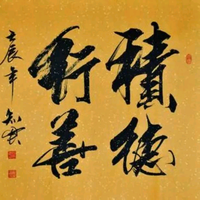 積德
行善
壬辰年